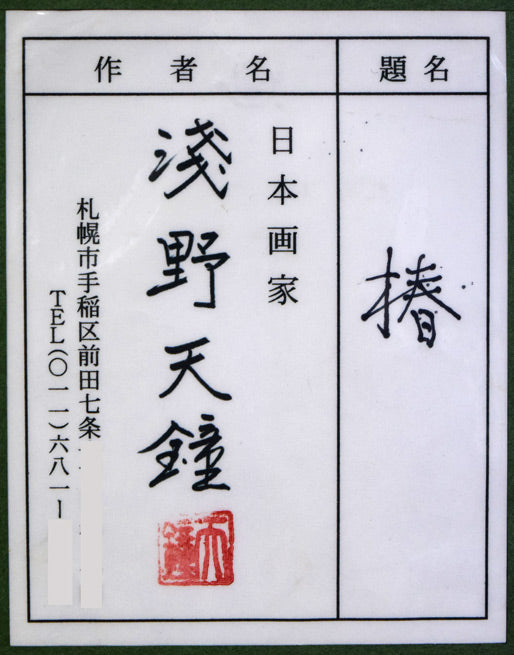 題名
椿
作者名
日本画家
淺野天鐘
天鐘
札幌市手稲区前田七条
TEL(〇一一)六八一ー